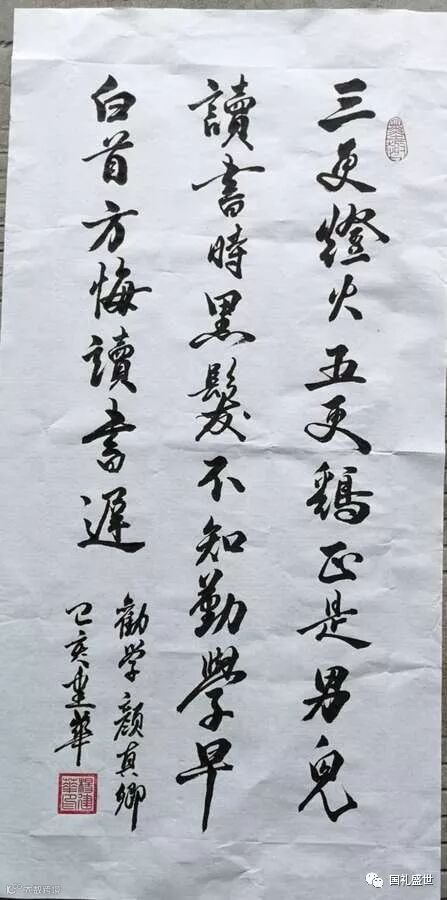 三更燈火五更鷄正是男兒
讀書時黑髮不知勤學早
白首方悔讀書遲
勸學顏真卿
己亥建華
国礼盛世